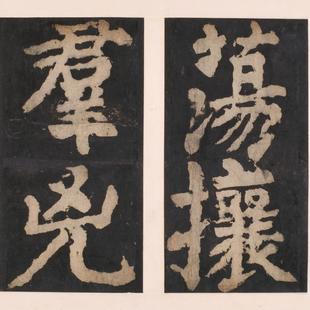 蕩攘
羣兇